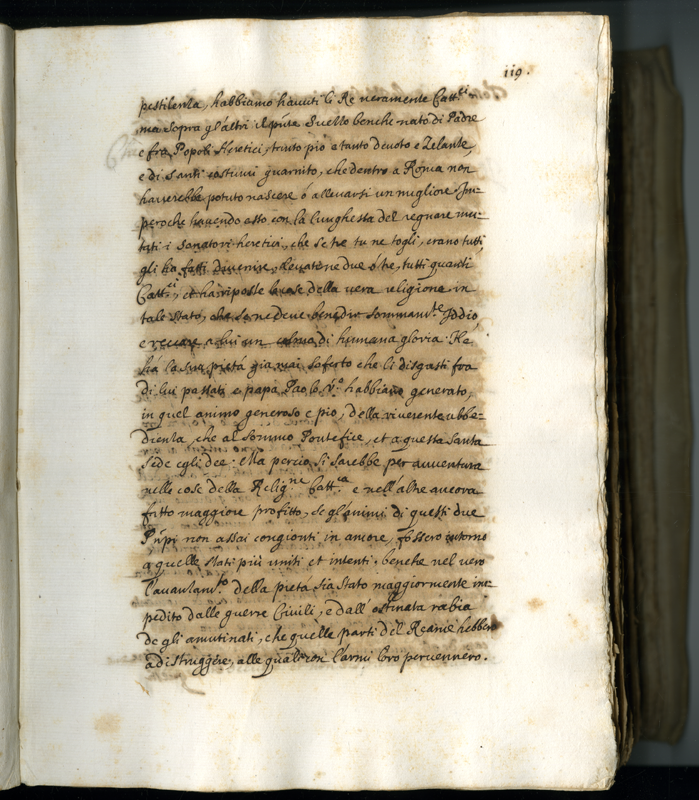 119.
pestilenza, habbiamo havuti li Re veramente Catt.ci
ma sopra gl'altri il pñte Suello benche nato di Padre
e fra Popoli Heretici, tanto pio e tanto devoto e Zelante,
e di Santi costumi guarnito, che dentro a Roma non
haverebbe potuto nascere ó allevarsi un migliore. Im-
peroche havendo esso con la lunghezza del regnare inui-
tati i Senatori heretici, che se tre tu ne togli, erano tutti
gli ha fatti divenire, levatene due o tre, tutti quanti
Catt.ci, et ha riposte le cose della vera religione in
tale stato, che se ne deve benedir sommam.te Iddio,
e recare a lui un colmo di humana gloria. Ne
há la sua pietá giamai soferto che li disgusti fra
di lui passati e papa Paolo V.o habbiano generato,
in quel animo generoso e pio, della riverente ubbe-
dienza, che al Sommo Pontefice, et a questa Santa
Sede egli dee. Ma percio si sarebbe per avventura
nelle cose della Relig.ne Catt.ca e nell'altre ancora
fatto maggiore profitto, se gl'animi di questi due
Pñpi non assai congionti in amore, fossero intorno
a quelle stati più uniti et intenti. benche nel vero
l'avanzam.to della pietá sia stato maggiormente im-
pedito dalle guerre Civili, e dall'ostinata rabia
de gli amutinati, che quelle parti del Reame hebbero
a distruggere, alle quali con l'armi loro pervennero.